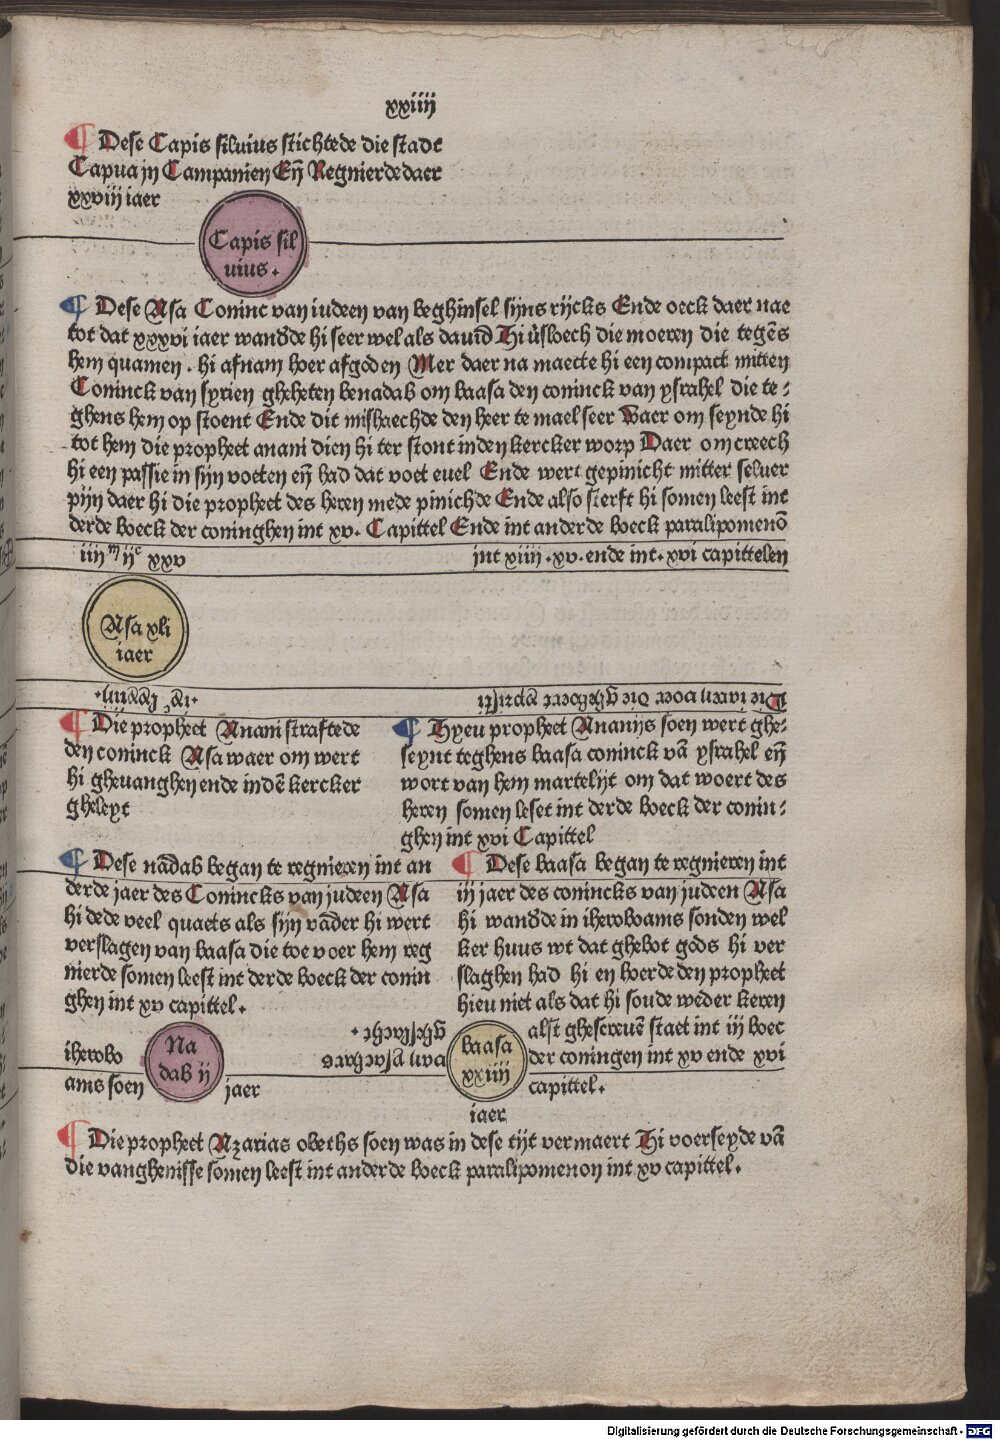 xxiiij
¶ Dese Capis siluius stichtede die stadt
Capua jn Campanien Eñ Regnierde daer
xxviij iaer
Capis sil
uius.
¶ Dese Asa Coninc van iudeen van beghinsel sijns rijcks Ende oeck daer nae
tot dat xxxvi iaer wanđde hi seer wel als dauid Hi v̄sloech die moeren die tegēs
hem quamen . hi afnam hoer afgoden Mer daer na maecte hi een compact mitten
Coninck van syrien gheheten benadab om baasa den coninck van ysrahel die te⸗
ghens hem op stoent Ende dit mishaechde den heer te mael seer Waer om seynde hi
tot hem die propheet anani dien hi ter stont inden kercker worp Daer om creech
hi een passie in sijn voeten eñ had dat voet euel Ende wert gepinicht mitter seluer
pijn daer hi die propheet des heren mede pinichde Ende also sterft hi somen leest int
derde boeck der coninghen int xv. Capittel Ende int anderde boeck paralipomenō
iiijᵐ ijᶜ xxv
jnt xiiij .xv. ende int. xvi capittelen
Asa xli
iaer
.ixᶜ lxxiiij.
¶ Die iaren voer die gheboert christi
¶ Die propheet Anani straftede
den coninck Asa waer om wert
hi gheuanghen ende indē kercker
gheleyt
¶ Hyeu propheet Ananijs soen wert ghe⸗
seynt teghens baasa coninck vā ysrahel eñ
wort van hem martelijt om dat woert des
heren somen leset int derde boeck der conin⸗
ghen int xvi Capittel
¶ Dese nadab began te regnieren int an
derde jaer des Conincks van judeen Asa
hi dede veel quaets als sijn vader hi wert
verslagen van baasa die toe voer hem reg
nierde somen leest int derde boeck der conin
ghen int xv capittel.
¶ Dese baasa began te regnieren int
iij jaer des conincks van judeen Asa
hi wanđde in iheroboams sonden wel
ker huus wt dat ghebot gods hi ver
slaghen had hi en hoerde den propheet
hieu niet als dat hi soude weder keren
alst ghescreuē staet int iij boec
der coningen int xv ende xvi
capittel.
iherobo
ams soen
Na
dab ij
jaer
van ysachars
gheslachte .
baasa
xxiiij
iaer
¶ Die propheet Azarias obeths soen was in dese tijt vermaert Hi voerseyde vā
die vanghenisse somen leest int anderde boeck paralipomenon int xv capittel.
Digitalisierung gefördert durch die Deutsche Forschungsgemeinschaft - DFG